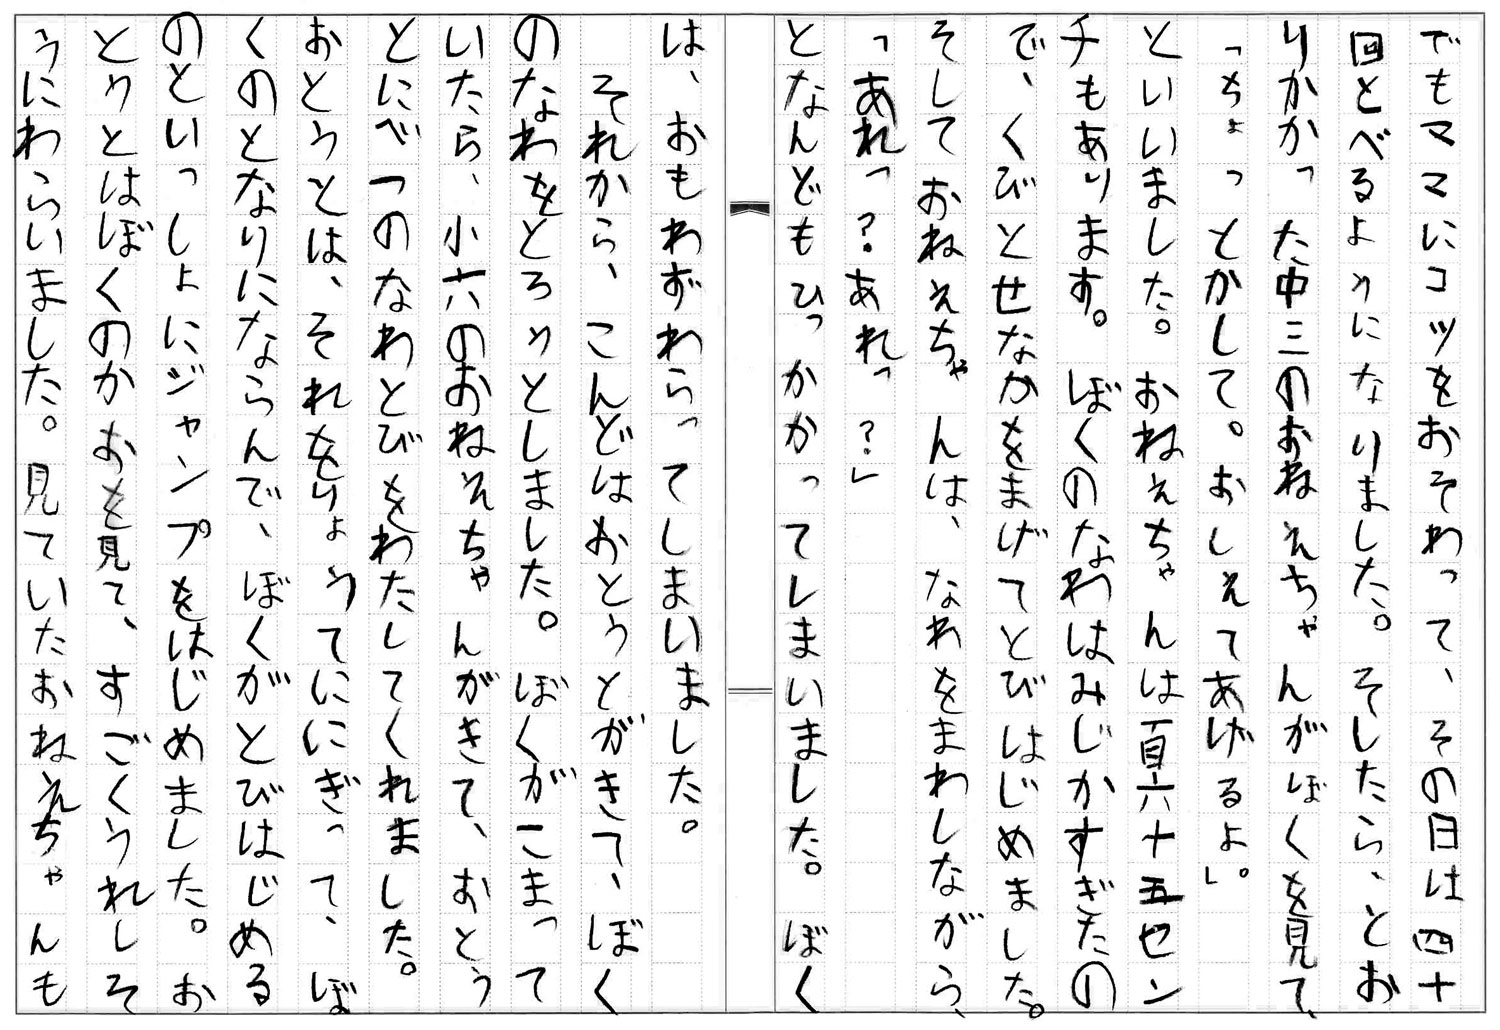 でもママにコツをおそわって、その日は四十
回とべるようになりました。そしたら、とお
りかかった中三のおねえちゃんがぼくを見て、
「ちょっとかして。おしえてあげるよ。」
といいました。おねえちゃんは百六十五セン
チもあります。ぼくのなわはみじかすぎたの
で、くびとせなかをまげてとびはじめました。
そしておねえちゃんは、なわをまわしながら、
「あれっ？あれっ？」
となんどもひっかかってしまいました。ぼく
は、おもわずわらってしまいました。
それから、こんどはおとうとがきて、ぼく
のなわをとろうとしました。ぼくがこまって
いたら、小六のおねえちゃんがきて、おとう
とにべつのなわとびをわたしてくれました。
おとうとは、それをりょうてににぎって、ぼ
くのとなりにならんで、ぼくがとびはじめる
のといっしょにジャンプをはじめました。お
とうとはぼくのかおを見て、すごくうれしそ
うにわらいました。見ていたおねえちゃんも